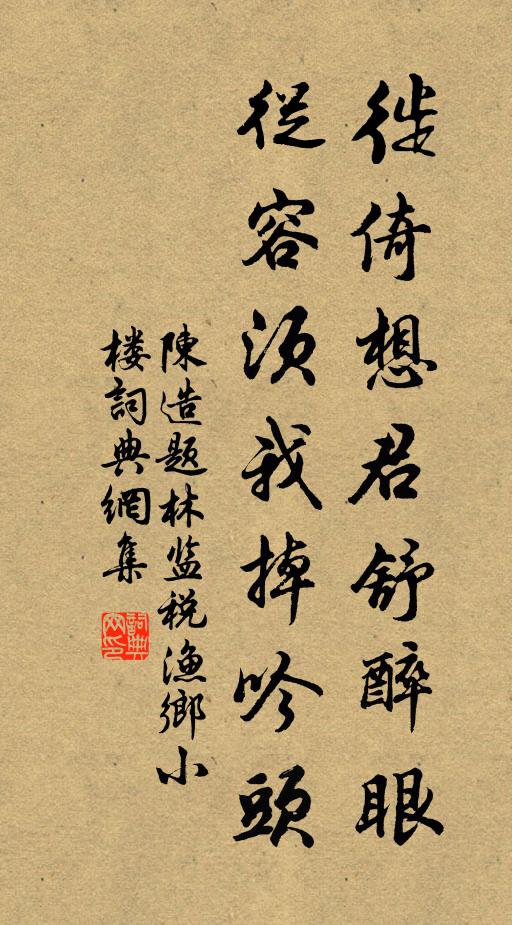 徙倚想君舒醉眼
從容須我掉吟頭
陳造題林监税漁鄉小
楼詞典網集
詞典網印